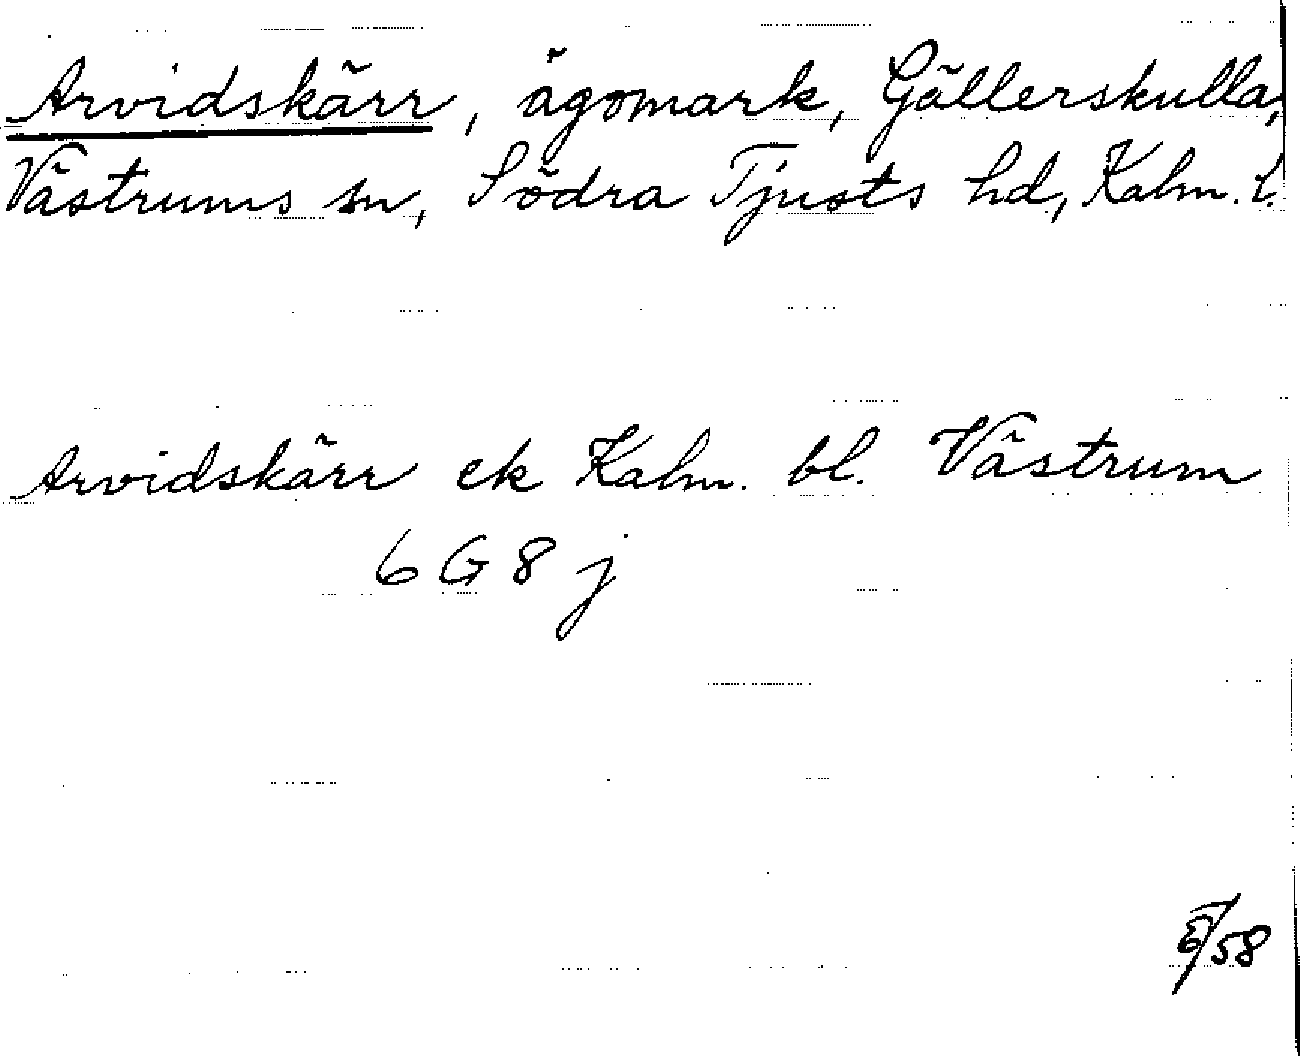 Arvidskärr, ägomark, Gällerskulla,
Västrums sn, Södra Tjusts hd, Kalm. l.
Arvidskärr ek Kalm. bl. Västrum
6 G 8 j